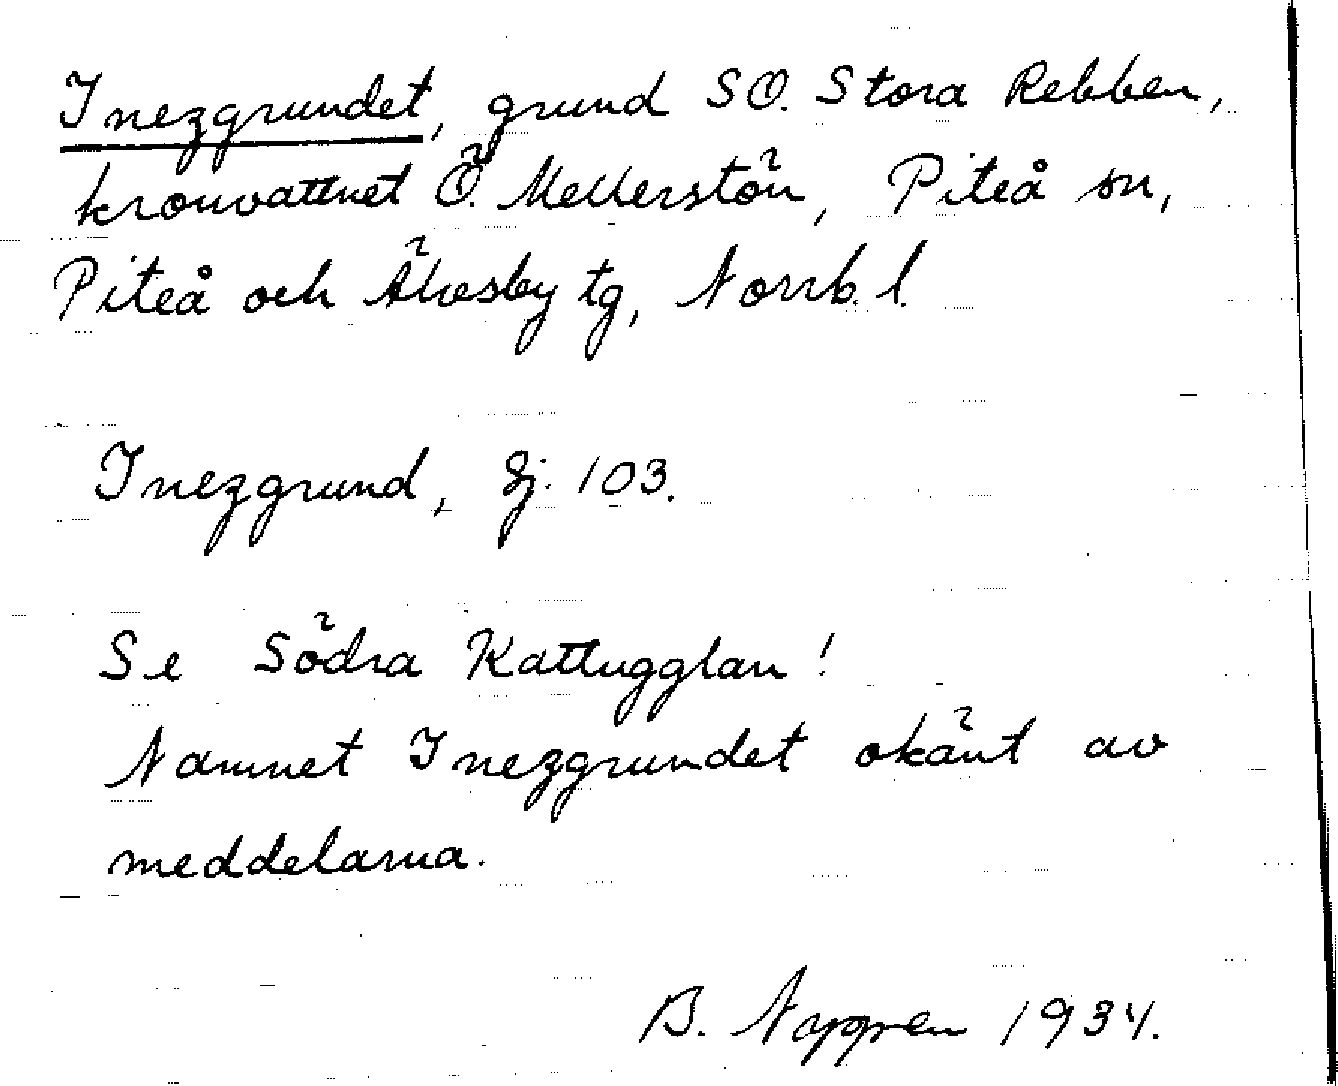 Inezgrundet, grund SO. Stora Rebben,
kronvattnet Ö. Mellerstön, Piteå sn,
Piteå och Älvsby tg, Norrb. l.
Inezgrund, Sj. 103.
Se Södra Kattugglan!
Namnet Inezgrundet okänt av
meddelarna.
B. Nygren 1934.